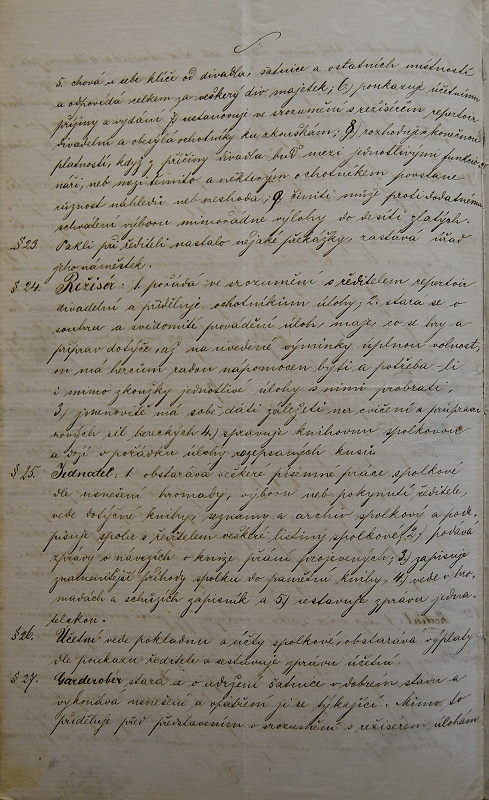 5. chová u sebe klíče od divadla, šatnice a ostatních místností
a odpovídá celkem za veškerý div. majetek; 6.) poukazuje účetnímu
příjmy a vydání 7. ustanovuje ve srozumění s režisérem repertoir
divadelní a obsýlá ochotníky ku zkouškám; 8.) rozhoduje s konečnou
platností, když z příčiny divadla buď mezi jednotlivými funkcio-
náři, neb mezi těmito a některým ochotníkem povstane
různost náhledů neb neshoba; 9. činiti může proti dodatnému
schválení výboru mimořádné výlohy do desíti zlatých.
§ 23. Pakli při řediteli nastalo nějaké překážky, zastává úřad
jeho náměstek.
§ 24. Režiser: 1. pořádá ve srozumění s ředitelem repertoir
divadelní a přiděluje ochotníkům úlohy; 2. stará se o
souhru a svědomité provádění úloh, maje, co se hry a
příprav dotýče, až na uvedené výminky úplnou volnost,
on má hercům radou nápomocen býti a potřeba-li
i mimo zkoušky jednotlivé úlohy s nimi probrati;
3.) jmenovitě má sobě dáti záležeti na cvičení a
sil hereckých 4.) spravuje knihovnu spolkovou
a drží v pořádku úlohy rozepsaných kusů.
§ 25. Jednatel: 1. obstarává veškeré písemné práce spolkové
dle usnešení hromady, výboru neb pokynutí ředitele,
vede dotýčné knihy, seznamy a archiv spolkový a pode-
pisuje spolu s ředitelem veškeré listiny spolkové; 2.) podává
zprávy o návrzích v knize přání projevených; 3.) zapisuje
znamenitější příhody spolku do pamětní knihy, 4.) vede v hro-
madách a schůzích zápisník a 5.) sestavuje zprávu jedna-
telskou.
§ 26. Účetní vede pokladnu a účty spolkové, obstarává výplaty
dle poukazu ředitele a sestavuje zprávu účetní.
§ 27. Garderobiér stará se o udržení šatnice v dobrém stavu a
vykonává usnešení a opatření jí se týkající. Mimo to
přiděluje před představením v srozumění s režisérem, úlohám